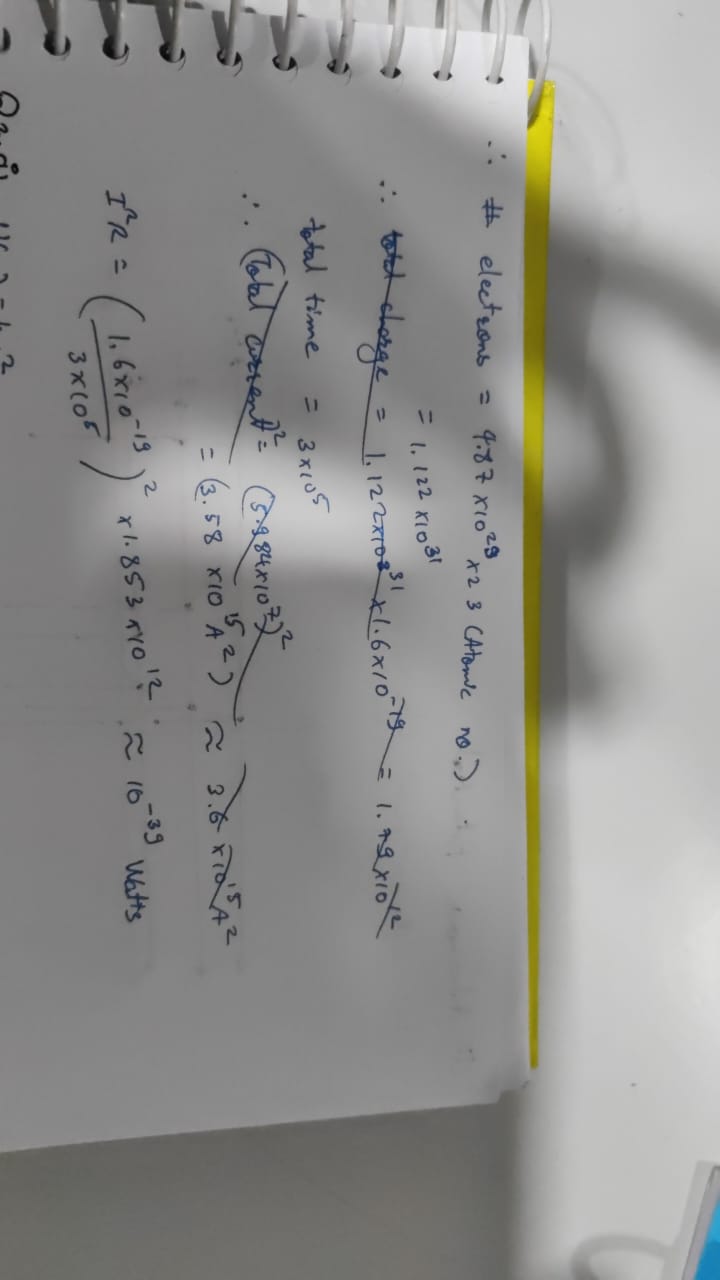 ∴ # electrons = 4.87 x10²⁹ x23 (Atomic no.).
= 1.122 x10³¹
∴ total charge = 1.122x10³¹ x1.6x10⁻¹⁹ = 1.79x10¹²
total time = 3x10⁵
∴ (Total current)² = (5.984x10⁷)²
= (3.58 x10¹⁵ A²) ≈ 3.6 x10¹⁵ A²
I²R = (1.6x10⁻¹⁹ / 3x10⁵)² x1.853x10¹² ≈ 10⁻³⁹ Watts